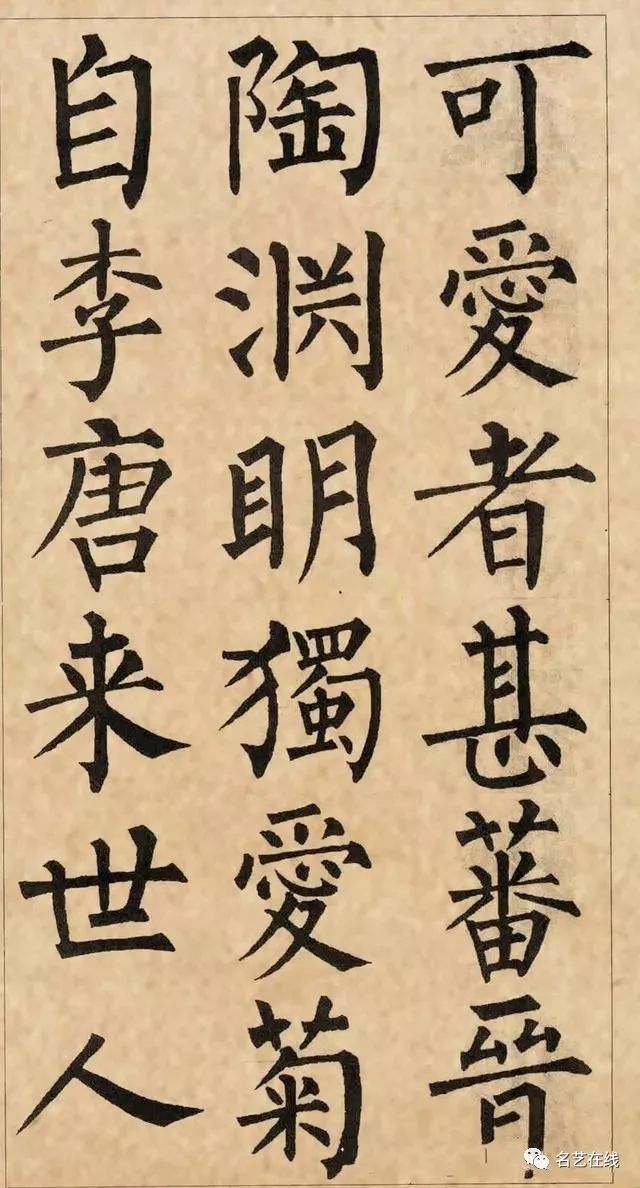 可愛者甚蕃晉
陶渕明獨愛菊
自李唐来世人
名艺在线